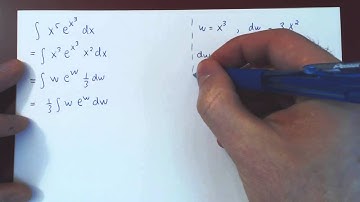 ∫ x⁵ e^(x³) dx
= ∫ x³ e^(x³) x² dx
= ∫ w e^w 1/3 dw
= 1/3 ∫ w e^w dw
w = x³ , dw = 3x²
dw